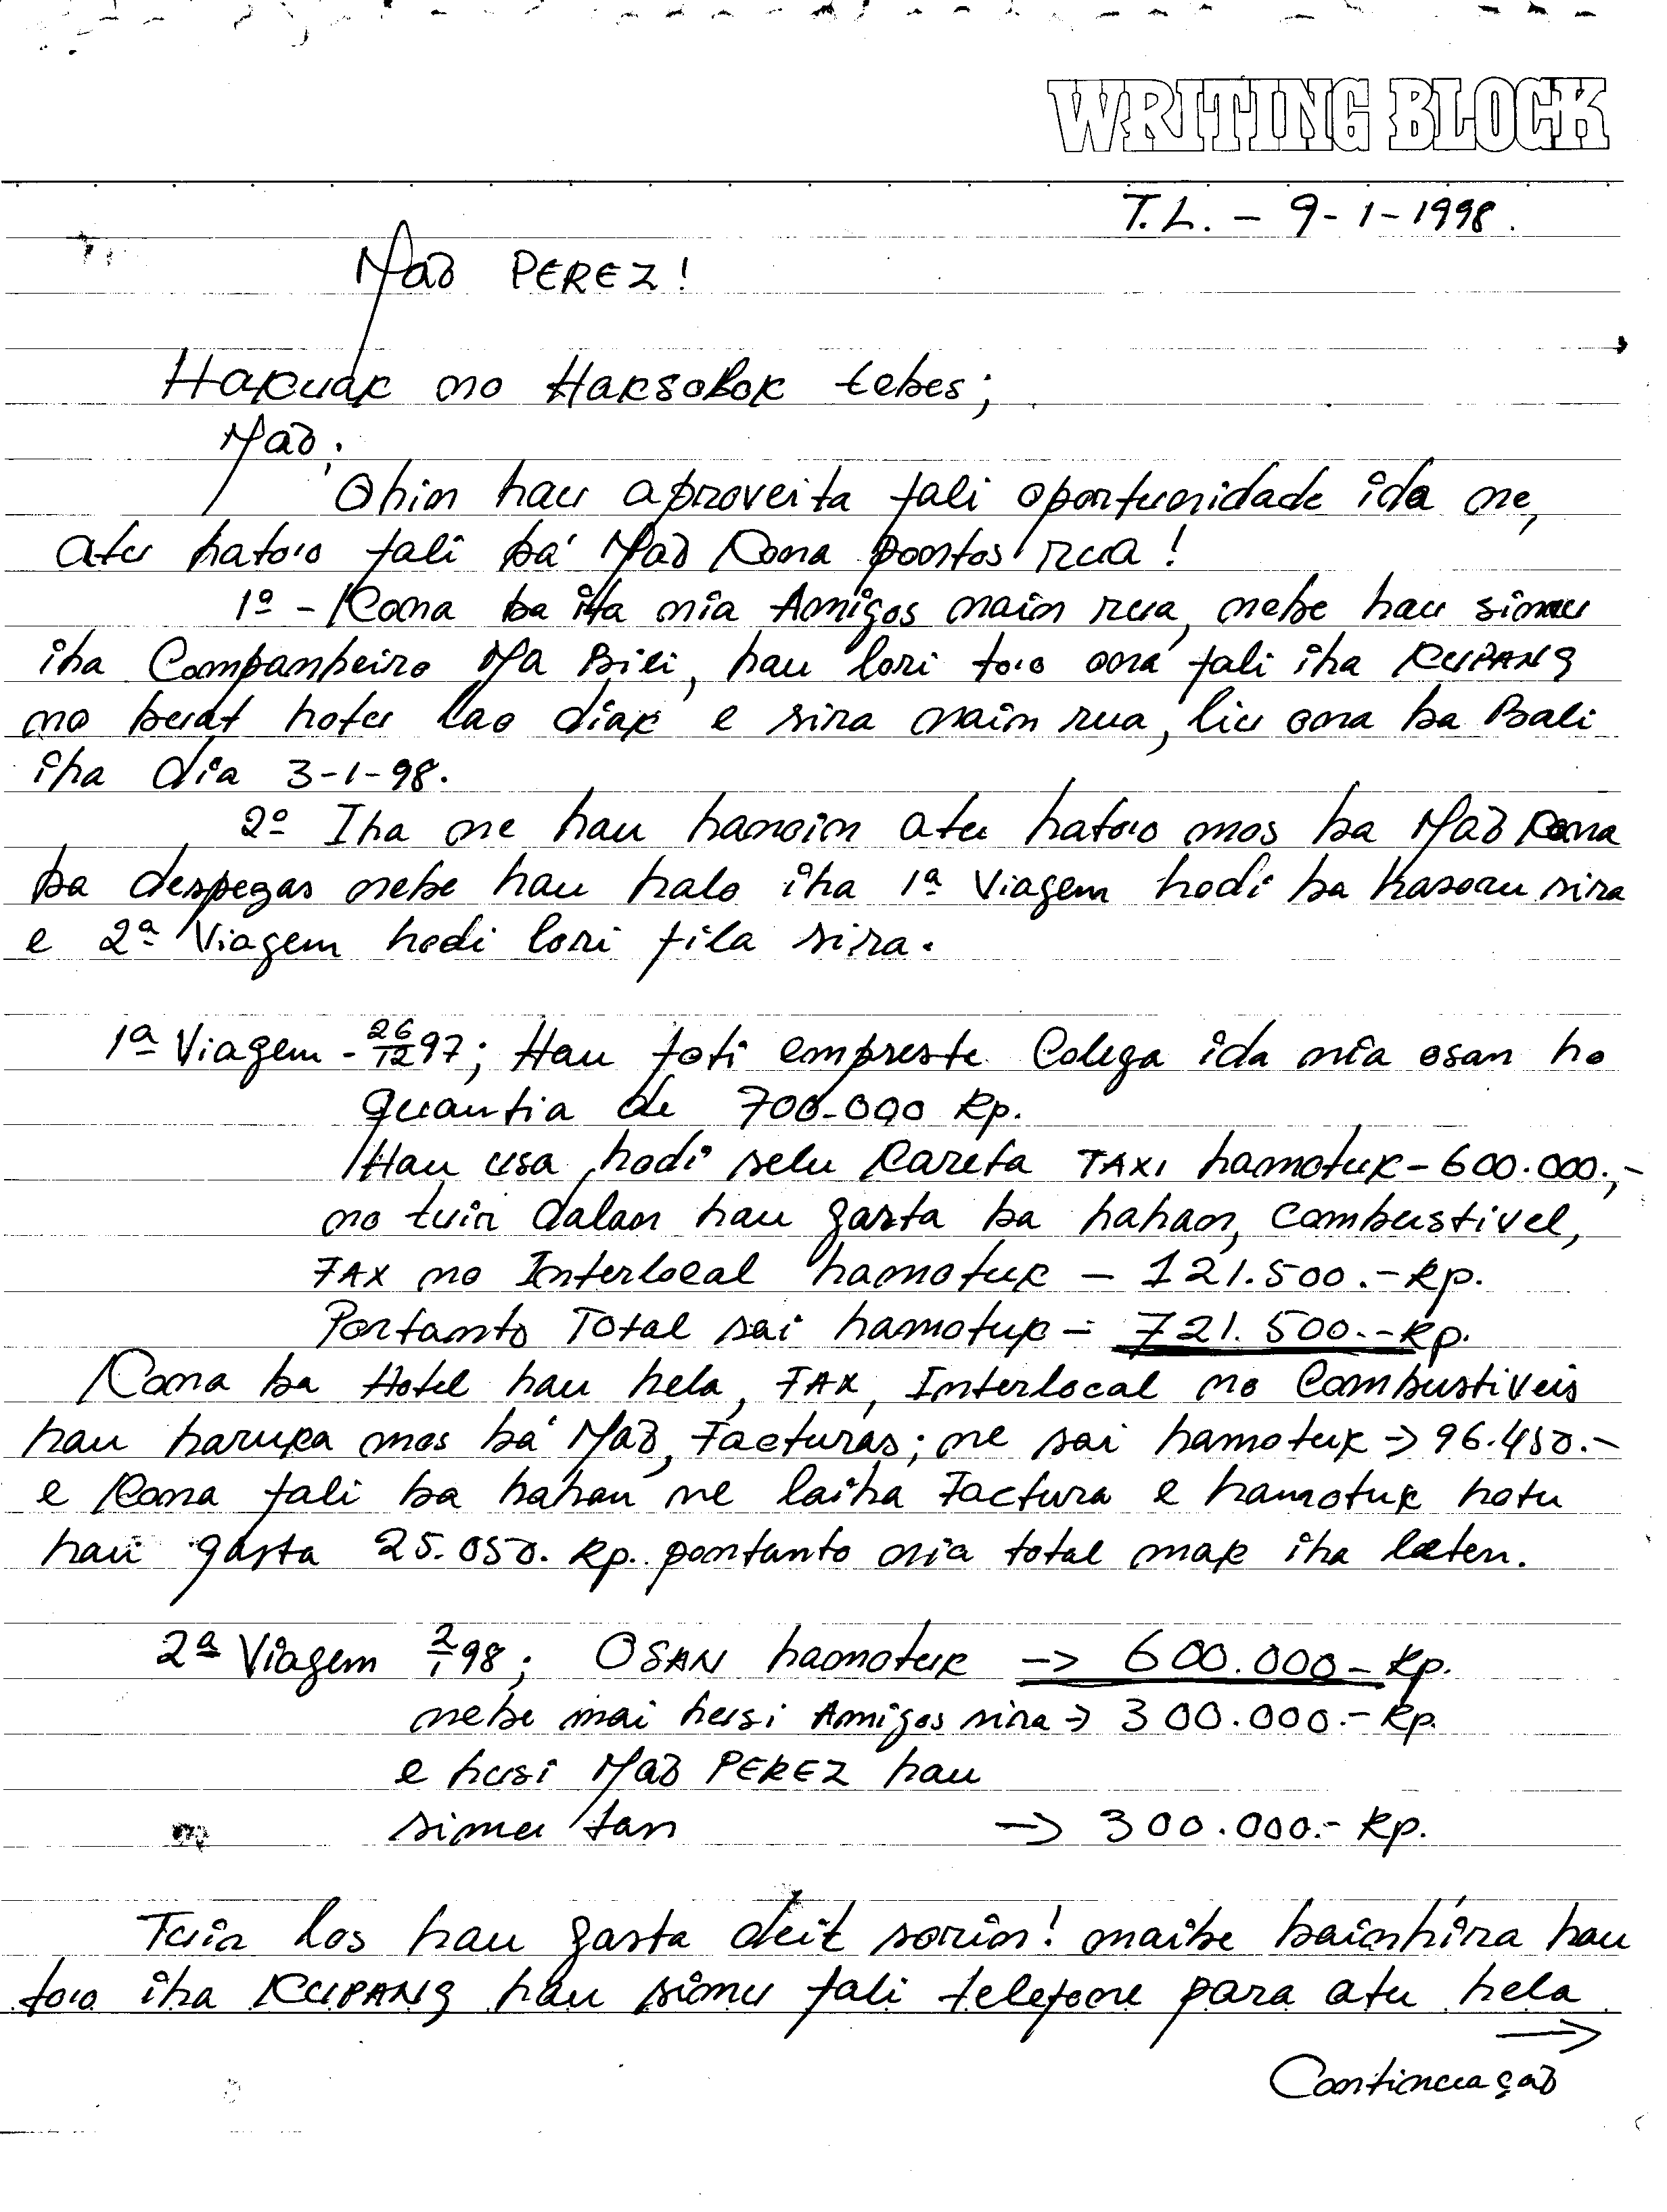 WRITING BLOCK
T.L. - 9-1-1998.
Maõ PEREZ!
Hakuak no Haksokok tebes;
Maõ;
Ohin hau aproveita fali oportunidade ida ne,
atu hato'o fali bá Maõ Kona pontos rua!
1º - Kona ba ita nia Amigos nain rua, nebe hau simu
iha Companheiro Ma Bili, hau lori to'o oná fali iha KUPANG
no buat hotu lao diak e sira nain rua, liu ona ba Bali
iha dia 3-1-98.
2º Iha ne hau hanoin atu hato'o mos ba Maõ Kona
ba despezas nebe hau halo iha 1ª Viagem hodi ba hasoru sira
e 2ª Viagem hodi lori fila sira.
1ª Viagem - 26/12 97; Hau foti empreste Colega ida nia osan ho
quantia de 700.000 Rp.
Hau usa hodi selu Kareta TAXI hamotuk - 600.000.,-
no tuir dalan hau gasta ba hahan, combustivel,
FAX no Interlocal hamotuk - 121.500.- Rp.
Portanto Total sai hamotuk - 721.500.- Rp.
Kona ba Hotel hau hela, FAX, Interlocal no Combustiveis
hau haruka mos bá Maõ, Facturas; ne sai hamotuk -> 96.450.-
e Kona fali ba hahan ne laiha Factura e hamotuk hotu
hau gasta 25.050. Rp. portanto nia total mak iha leten.
2ª Viagem 2/1 98; OSAN hamotuk -> 600.000 - Rp.
nebe mai husi Amigos sira -> 300.000.- Rp.
e husi Maõ PEREZ hau
simu tan -> 300.000.- Rp.
Tuir los hau gasta deit sorin! maibe bainhira hau
to'o iha KUPANG hau simu fali telefone para atu hela
->
Continuaçaõ